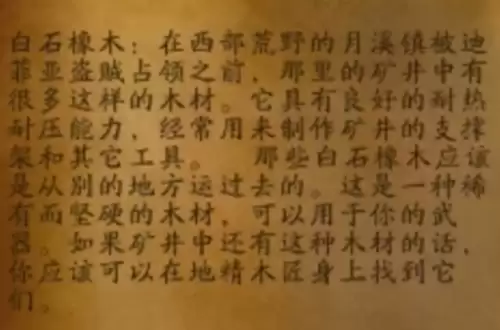 白石橡木：在西部荒野的月溪镇被迪
菲亚盗贼占领之前，那里的矿井中有
很多这样的木材。它具有良好的耐热
耐压能力，经常用来制作矿井的支撑
架和其它工具。 那些白石橡木应该
是从别的地方运过去的。这是一种稀
有而坚硬的木材，可以用于你的武
器。如果矿井中还有这种木材的话，
你应该可以在地精木匠身上找到它
们。